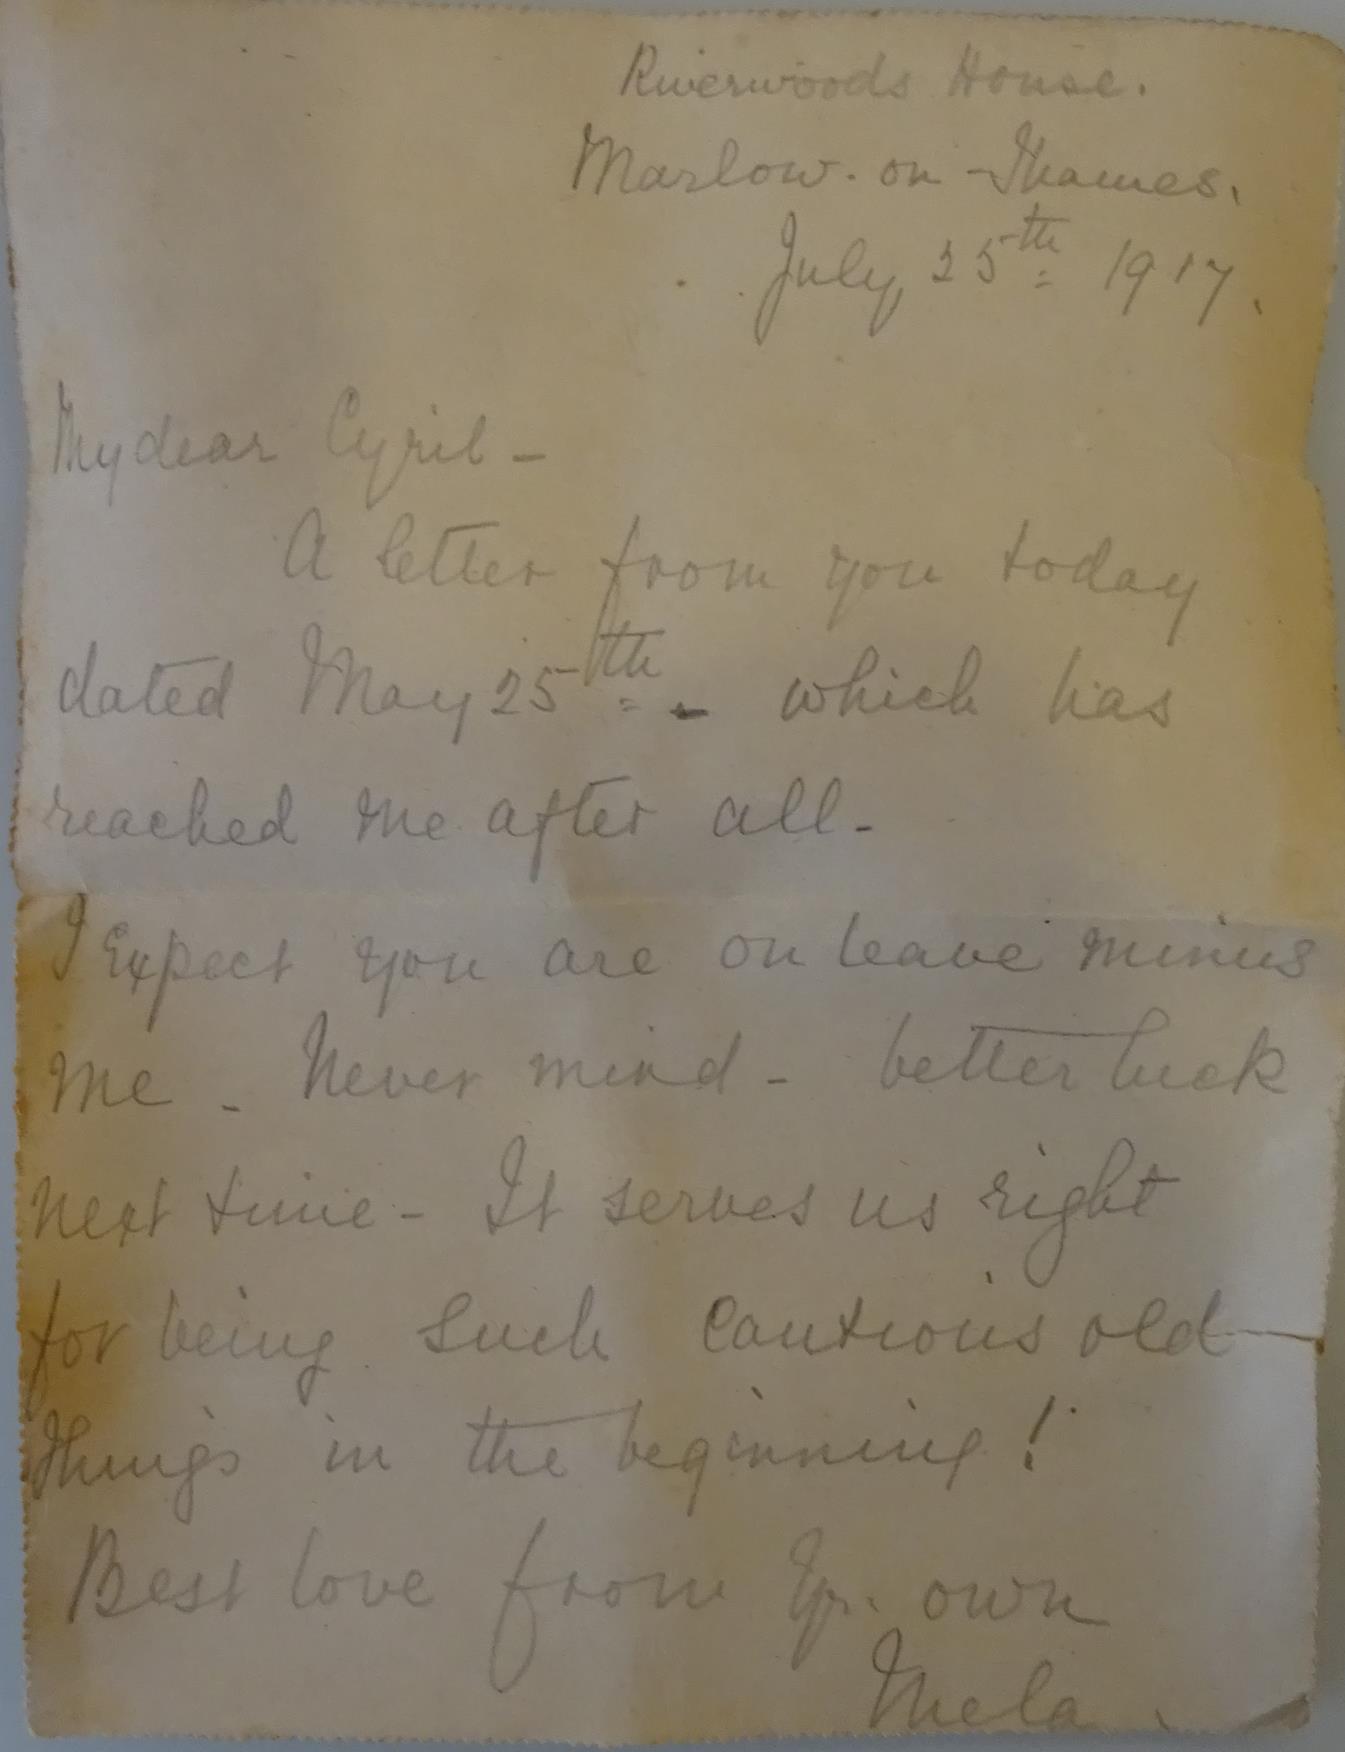 Riverwoods House.
Marlow. on - Thames.
July 25th 1917.
My dear Cyril -
A letter from you today
dated May 25th - which has
reached me after all -
I Expect you are on leave minus
me - Never mind - better luck
next time - It serves us right
for being such Cautious old
things in the beginning!
Best love from Yr. own
Mela.